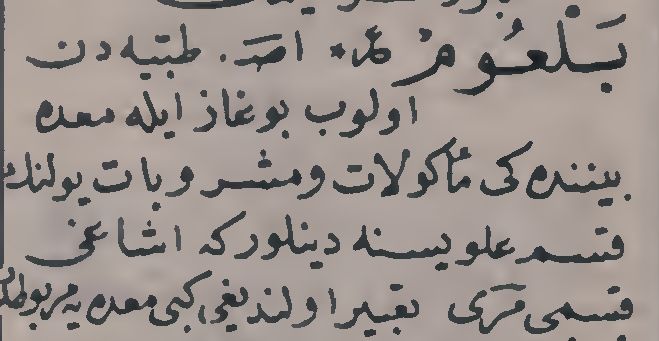 بَلْعُومْ عذ٭ اصـ. طبّيه دن
اولوب بوغاز ايله معده
بيننده كى مأكولات ومشروبات يولنك
قسم علويسنه دينلوركه اشاغى
قسمى مَرِّى تعبير اولنديغى كبى معده يه مربوطدر